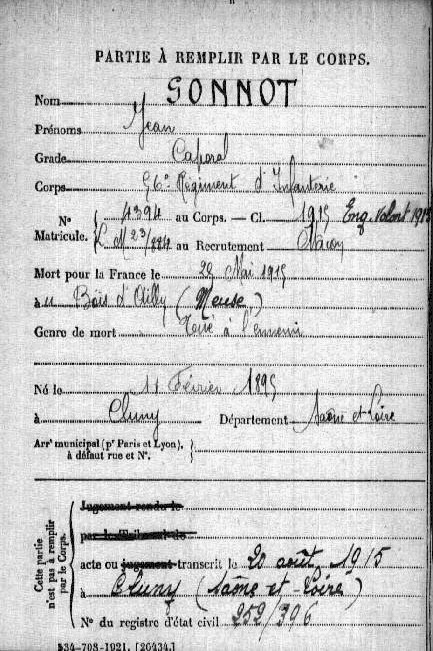 PARTIE À REMPLIR PAR LE CORPS.
Nom SONNOT
Prénoms Jean
Grade Caporal
Corps 56e Régiment d'Infanterie
No 4394 au Corps. — Cl. 1915 Eng. Volont 1913
Matricule. L M 23/884 au Recrutement Mâcon
Mort pour la France le 29 Mai 1915
à u Bois d'Ailly (Meuse)
Genre de mort Tué à l'ennemi
Né le 11 Février 1895
à Cluny Département Saône et Loire
Arrt municipal (pr Paris et Lyon),
à défaut rue et No.
Cette partie
n'est pas à remplir
par le Corps.
Jugement rendu le
par le Tribunal de
acte ou jugement transcrit le 20 août 1915
à Cluny (Saône et Loire)
No du registre d'état civil 252/396
534-708-1921. [26434.]